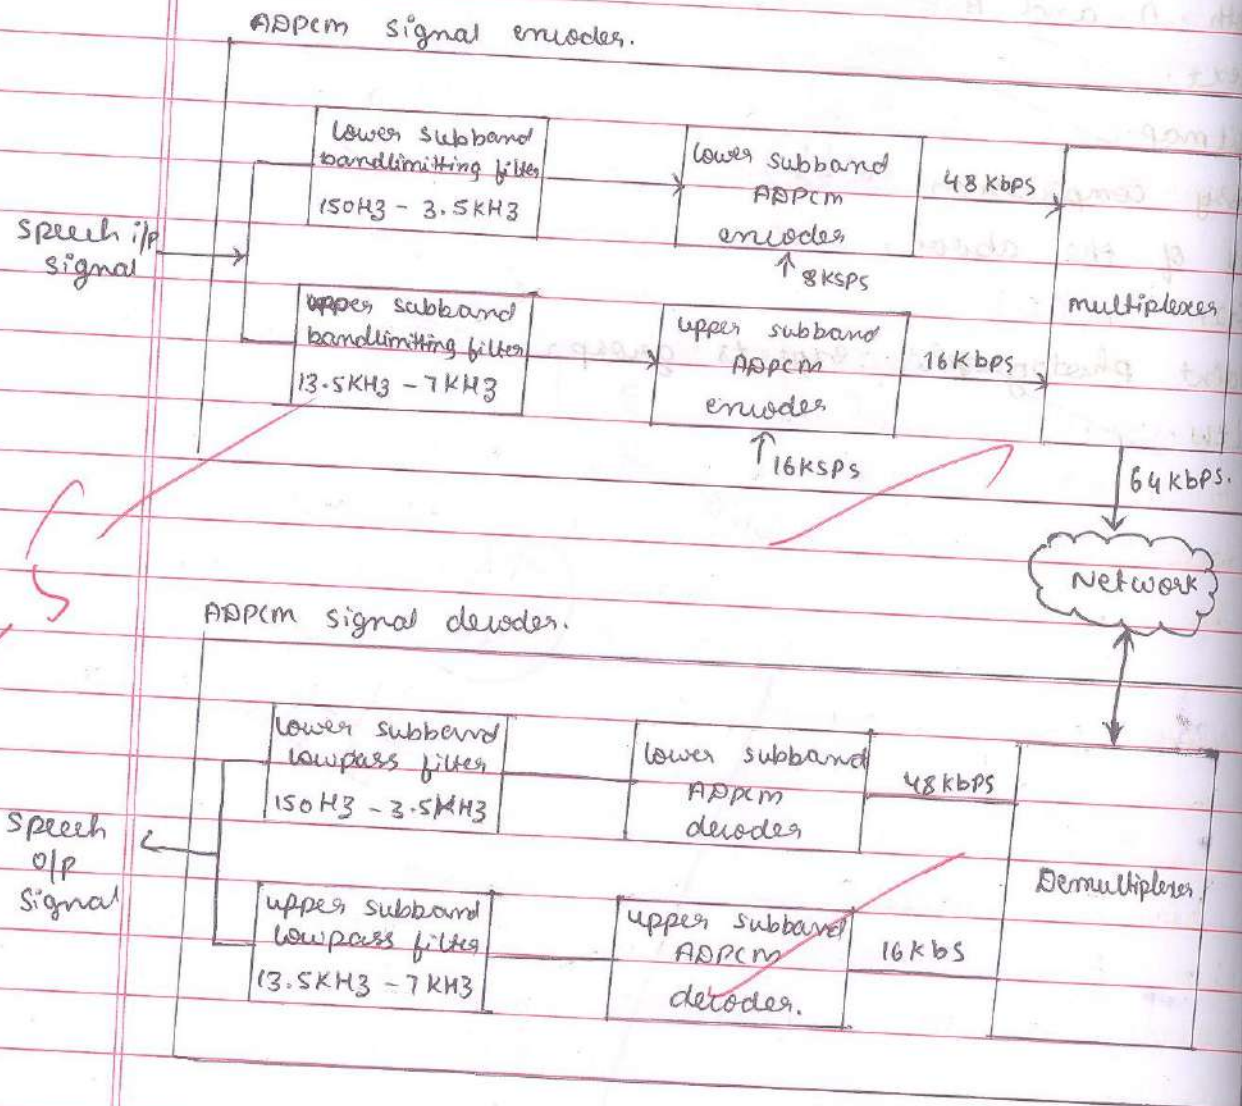 ADPCM signal encoder.
lower subband
bandlimitting filter
150Hz - 3.5KHz
lower subband
ADPCM
encoder
8KSPS
48 KbPS
speech i/p
signal
upper subband
bandlimitting filter
13.5KHz - 7KHz
upper subband
ADPCM
encoder
16KSPS
16KbPS
multiplexer
64 KbPS.
Network
ADPCM signal decoder.
lower subband
lowpass filter
150Hz - 3.5KHz
lower subband
ADPCM
decoder
48 KbPS
speech
o/p
signal
upper subband
lowpass filter
13.5KHz - 7KHz
upper subband
ADPCM
decoder.
16KbS
Demultiplexer
5